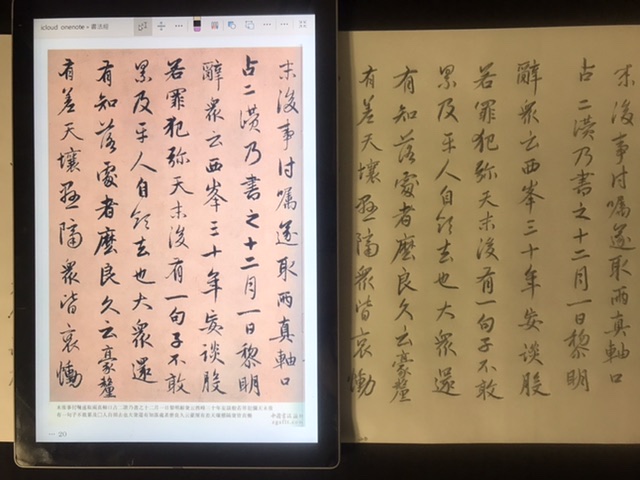 icloud onenote › 書法組
末後事付囑遂取兩真軸口
占二讚乃書之十二月一日黎明
辭衆云西峯三十年妄談般
若罪犯弥天末後有一句子不敢
累及平人自領去也大衆還
有知落處者麼良久云毫釐
有差天壤懸隔衆皆哀慟
20
末後事付囑遂取兩真軸口
占二讚乃書之十二月一日黎明
辭衆云西峯三十年妄談般
若罪犯弥天末後有一句子不敢
累及平人自領去也大衆還
有知落處者麼良久云毫釐
有差天壤懸隔衆皆哀慟